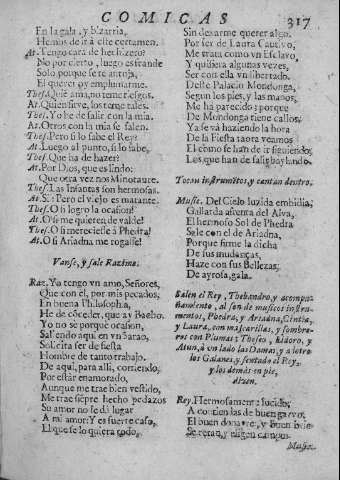 COMICAS
317
En la gala, y bizarria,
Hemos de ir à este certamen.
At. Tengo cara de hechizero?
No por cierto, luego es fraude
Solo porque se te antoja,
El querer oy emplumarme.
Thes. Quië ama, no teme riesgos.
At. Quien sirve, los teme tales.
Thes. Yo he de salir con la mia.
At. Otros con la mia se salen.
Thes. Pero si lo sabe el Rey?
At. Luego al punto, si lo sabe,
Thes. Que ha de hazer?
At. Por Dios, que es lindo:
Que otra vez nos Minotaure.
Thes. Las Infantas son hermosas.
At. Si: Pero el viejo es matante.
Thes. O si logro la ocasion!
At. O si me quieren de valde!
Thes. O si mereciesse à Phedra!
At. O si Ariadna me rogasse!
Vanse, y sale Razimo.
Raz. Yo tengo vn amo, Señores,
Que con el, por mis pecados,
En buena Philosophia,
He de cõceder, que ay Bacho.
Yo no se porque ocasion,
Saliendo aqui en vn
Solicita ser de fiesta
Hombre de tanto trabajo.
De aqui, para alli, corriendo,
Por estar enamorado,
Aunque me trae bien vestido,
Me trae siëpre hecho pedazos
Su amor no se dà lugar
A mi amor: Y es fuerte caso,
El que se lo quiera todo,
Sin dexarme querer algo.
Por ser de Laura Cautivo,
Me trata como vn Esclavo,
Y quisiera algunas vezes,
Ser con ella vn libertado.
Deste Palacio Mondonga,
Segun los pies, y las manos,
Me ha parecido; porque
De Mondonga tiene callos.
Ya se và haziendo la hora
De la fiesta aora veamos
El como se han de ir siguiendo
Los que han de salir baylando.
Tocan instrumētos, y cantan dentro.
Music. Del Cielo luzida embidia,
Gallarda afrenta del Alva,
El hermoso Sol de Phedra
Sale con el de Ariadna,
Porque firme la dicha
De sus mudanças,
Haze con sus Bellezas,
De ayrosa, gala.
Salen el Rey, Thebandro, y acompañamiento, al son de musicos instrumentos, Phedra, y Ariadna, Cintia,
y Laura, con mascarillas, y sombreros con Plumas; Theseo, Isidoro, y
Atun, à vn lado las Damas, y a otro
los Galanes, y sentado el Rey,
y los demàs en pie,
dizen.
Rey. Hermosamente lucido,
A
El buen
Music.